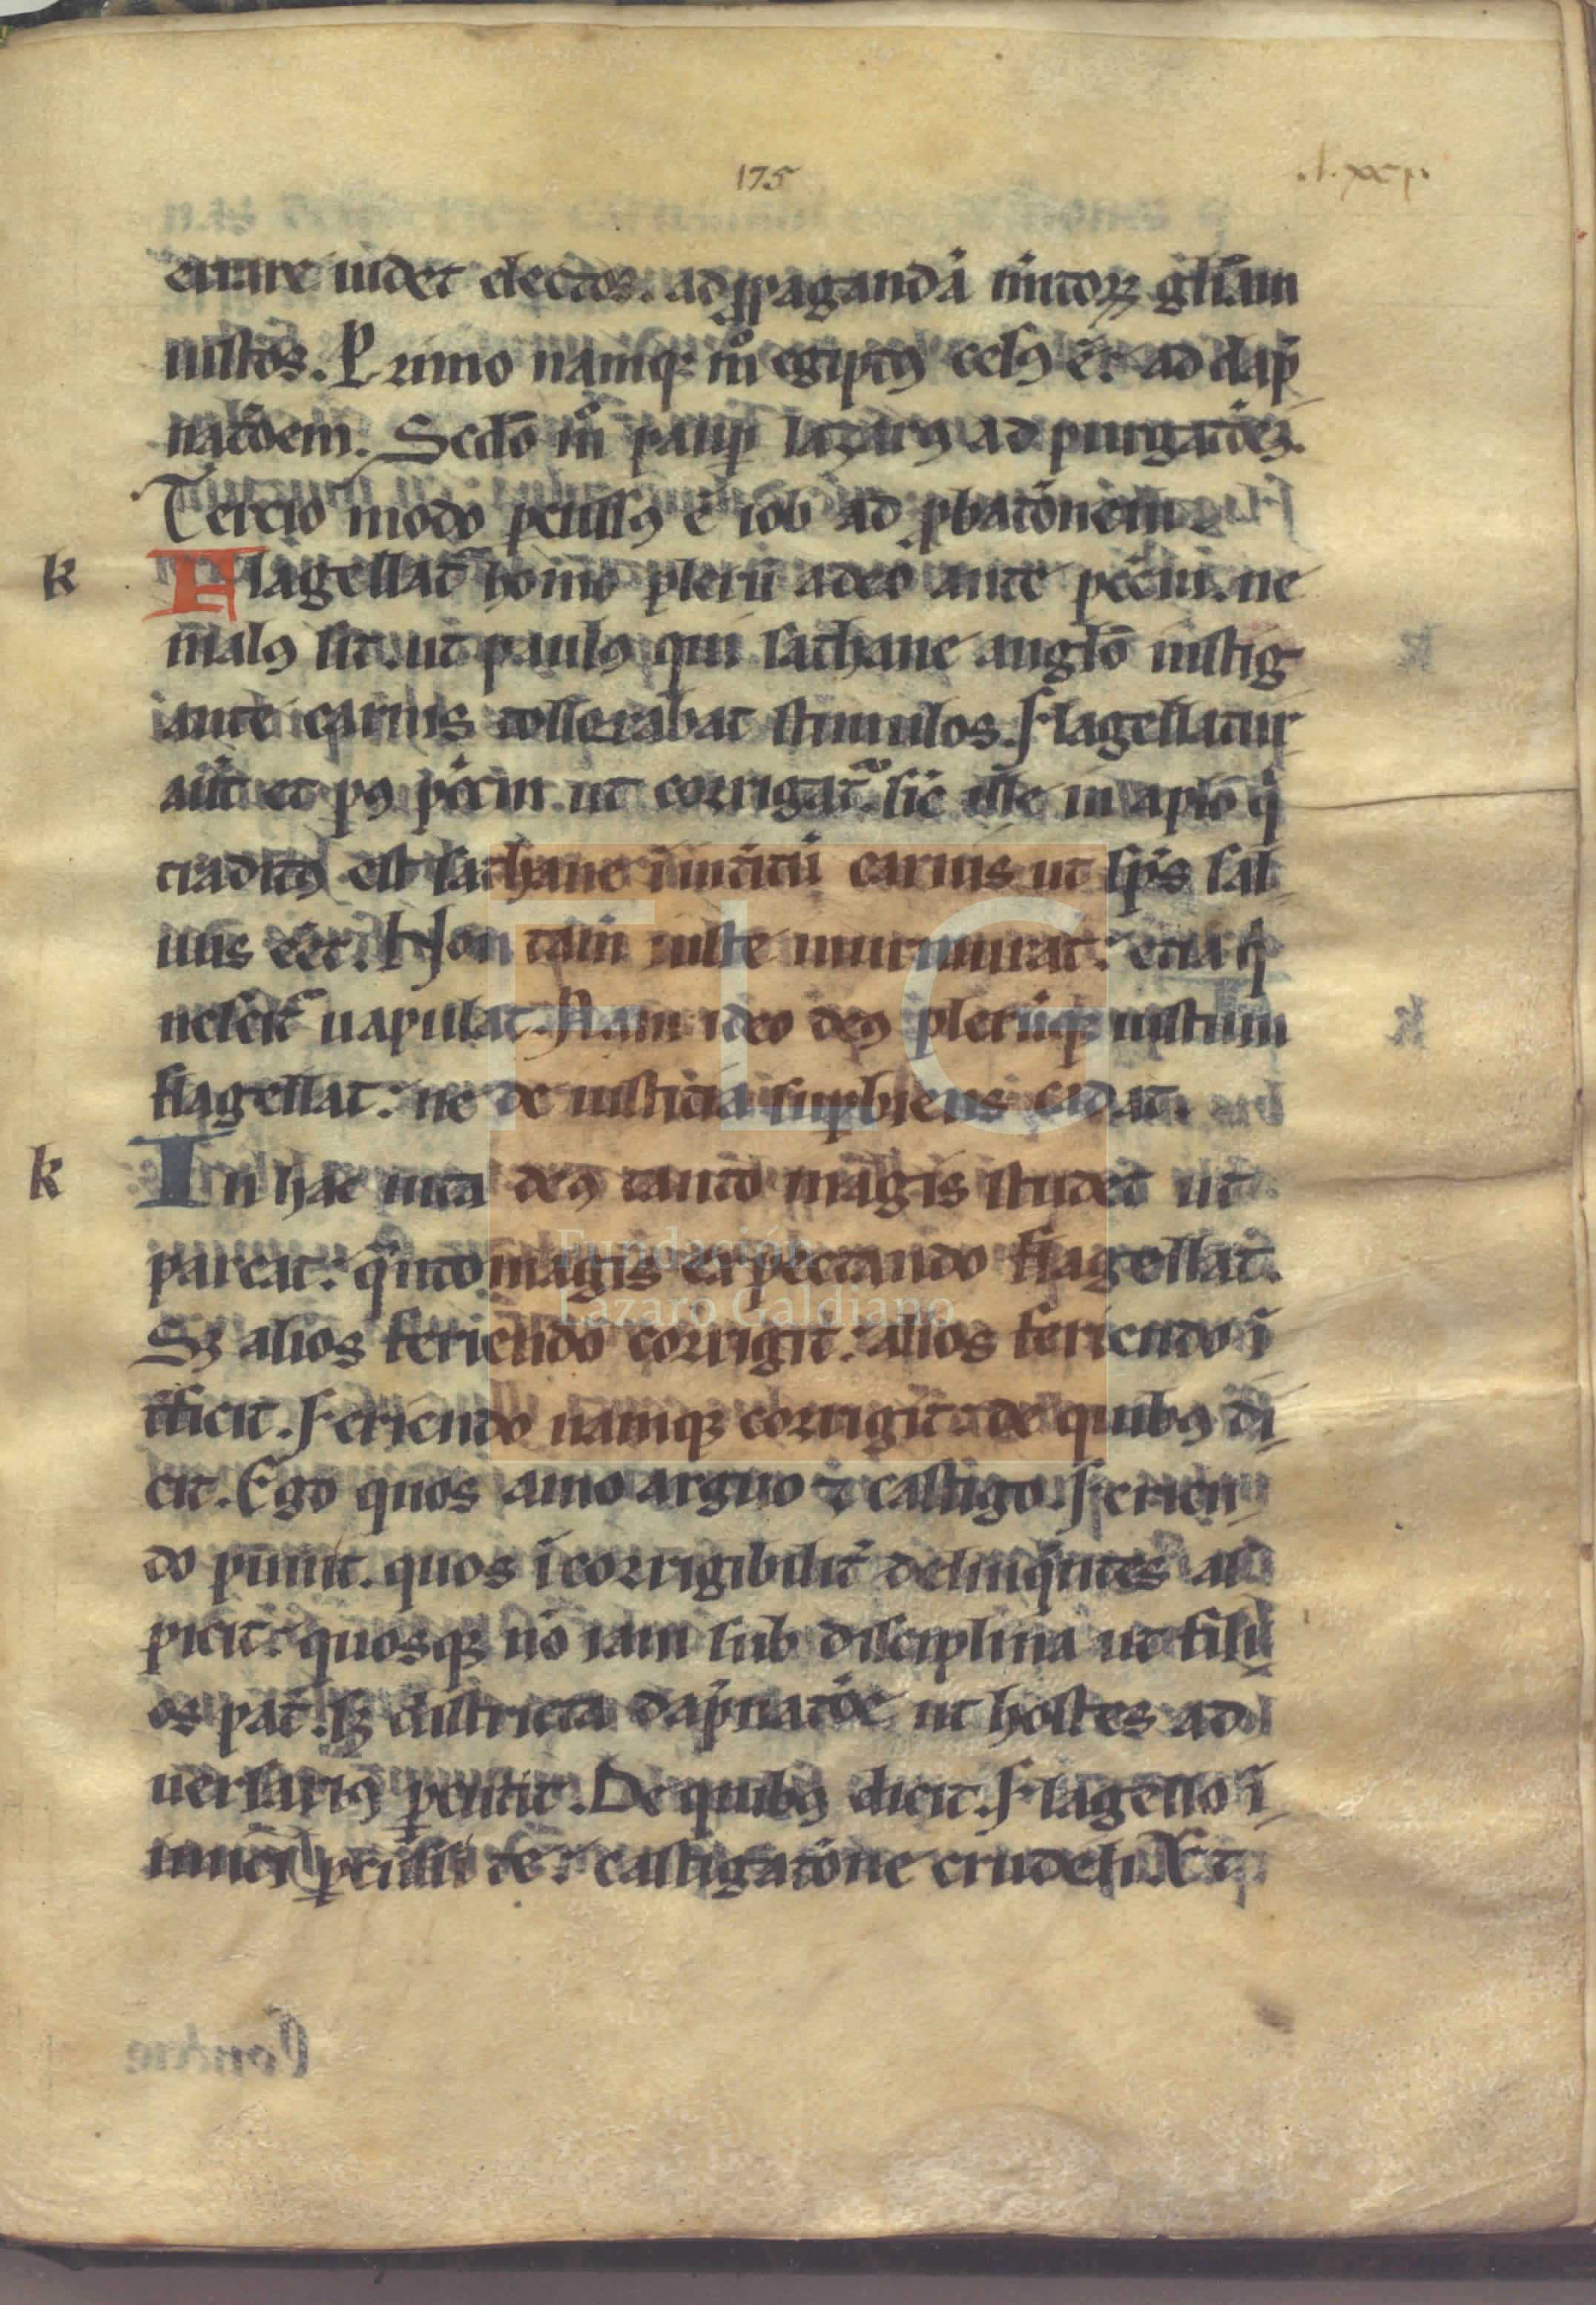 175
.l.xxj.
errare uidet electos. ad ꝓpagandā mitoꝝ glīam
iustos. Primo namqꝫ mº egiptꝰ cesꝰ ē. ad dāp
natōem. Scdo mº pauꝑ lazarus ad purgatōeꝫ.
Tercio modo ꝑcussꝰ ē iob ad ꝓbatōnem.
k
Flagellat̄ homo plerū adeo ante pccm. ne
malꝰ sit. ut paulꝰ qui sathane anglo instig
ante carnis tollerabat stimulos. Flagellatur
aūt et pꝰ pccm. ut corrigat̄. sic ille in aplo q̄
traditꝰ est sathane ī intitū carnis ut sps sal
uus eēt. Non tam iuste murmurat. etiā q̄
nescit uapulat. Nam ideo deꝰ plerūqꝫ iustum
flagellat. ne de iusticia suꝑbiens cadat.
k
In hac uita deꝰ tanto magis studet ut
parcat. q̄nto magis expectando flagellat.
Sꝫ alios feriendo corrigit. alios feriendo ī
tficit. Feriendo namqꝫ corrigit. de quibꝰ di
cit. Ego quos amo arguo ⁊ castigo. Ferien
do punit. quos īcorrigibilit̄ delinq̄ntes as
picit. quosqꝫ nō iam sub disciplina ut fili
os pat̄. sꝫ districta dāpnatōe ut hostes ad
uersariꝰ ꝑcutit. De quibꝰ dicit. Flagello ī
imici ꝑcussi te. castigatōne crudeli. Et
Fundación
Lázaro Galdiano
FLG